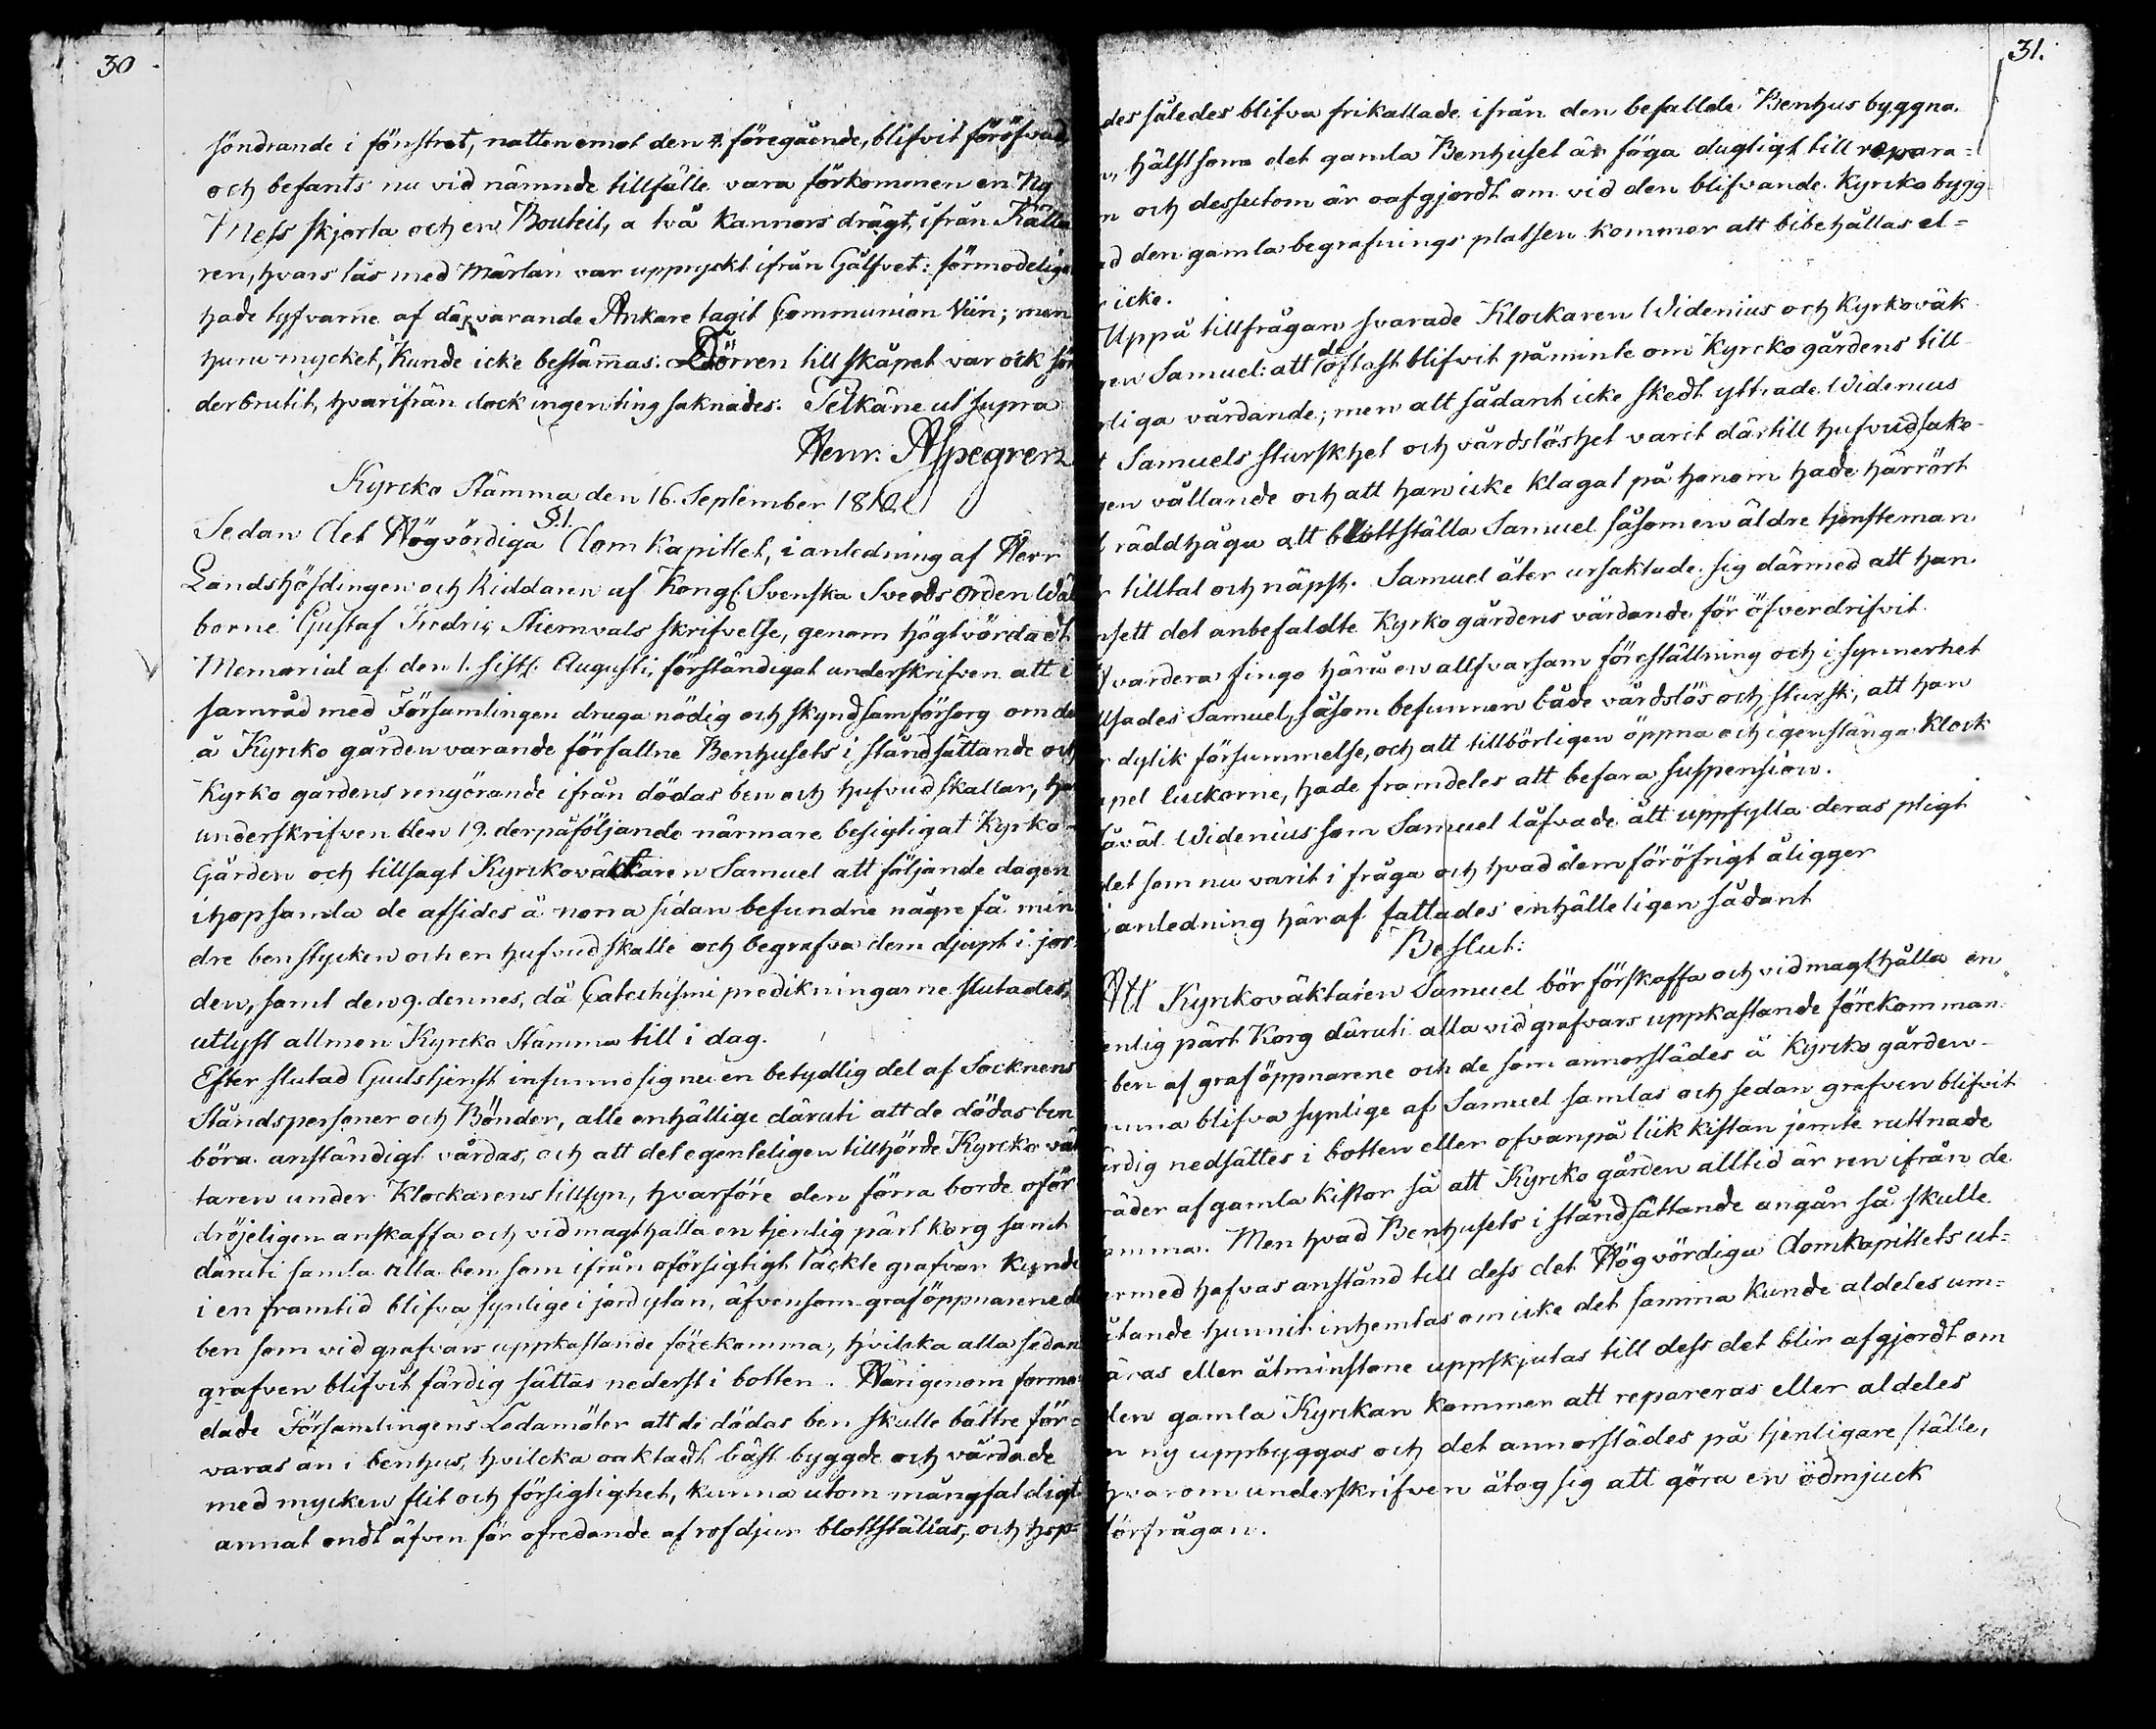 30
söndrande i fönstret, natten emot den 4 föregående, blifvit föröfvad
och befants nu vid nämnde tillfälle vara förkommen en Ny
Mess skjorta och en Bouteil, a två kannors drägt, ifrån Källa
ren, hvars lås med Märlan var uppryckt ifrån Gålfvet: förmodelige
hade tyfvarne af därvarande Ankare tagit Communion Viin; men
huru mycket, kunde icke bestämmas. Dörren till skåpet var ock sön
derbrutit, hvarifrån dock ingenting saknades. Pelkäne ut supra
Henr. Aspegren
Kyrcko Stämma den 16. September 1812
§.1.
Sedan det Högvördiga Dom Kapitlet, i anledning af Herr
Landshöfdingen och Riddaren af Kongl. Svenska Sverds Orden Wäl
borne Gustaf Fredric Stiernvals skrifvelse, genom högtvördadt
Memorial af den 1. sistl. Augusti, förständigat underskrifven att i
samråd med Församlingen draga nödig och skyndsam försorg om de
å Kyrcko gården varande förfallne Benhusets i ståndsättande och
Kyrko gårdens rengörande ifrån dödas ben och hufvudskallar, har
underskrifven den 19. derpåföljande närmare besigtigat Kyrko-
Gården och tillsagt Kyrckoväktaren Samuel att följande dagen
ihopsamla de afsides å norra sidan befundne någre få min
dre benstycken och en hufvudskalle och begrafva dem djupt i jor-
den, samt den 9. dennes, då Catechismi predikningarne slutades,
utlyst allmen Kyrcko Stämma till i dag.
Efter slutad Gudstjenst infunno sig nu en betydlig del af Socknens
Ståndspersoner och Bönder, alle enhällige däruti att de dödas ben
böra anständigt vårdas, och att det egenteligen tillhörde Kyrcko väk
taren under Klockarens tillsyn, hvarföre den förra borde oför
dröjeligen anskaffa och vidmagthalla en tjenlig pärt korg samt
däruti samla alla ben som ifrån oförsigtigt täckte grafvar kunde
i en framtid blifva synlige i jordytan, äfvensom graföppnarene de
ben som vid grafvars uppkastande förekomma, hvilcka alla sedan
grafven blifvit färdig sättas nederst i botten. Härigenom formo-
dade Församlingens Ledamöter att de dödas ben skulle bättre för-
varas än i benhus, hvilcka oaktadt bäst byggde och vårdade
med mycken flit och försigtighet, kunna utom mångfaldigt
annat ondt äfven för ofredande af rofdjur blottställas, och hop-
31.
des således blifva frikallade ifrån den befallde Benhus byggna.
n, hälst som det gamla Benhuset är föga dugligt till repara-
n och dessutom är oafgjordt om vid den blifvande Kyrcko bygg
ad den gamla begrafnings platsen kommer att bibehållas el-
r icke.
Uppå tillfrågan svarade Klockaren Widenius och Kyrkoväk
ren Samuel: att de oftast blifvit påminte om Kyrcko gårdens till
rliga vårdande; men att sådant icke skedt yttrade Widenius
t Samuels sturskhet och vårdslöshet varit därtill hufvudsake-
gen vållande och att han icke klagat på honom hade härrört
räddhåga att blottställa Samuel såsom en äldre tjensteman
r tilltal och näpst. Samuel åter ursäktade sig därmed att han
nsett det anbefaldte Kyrko gårdens vårdande för öfverdrifvit.
vardera fingo häru en allfvarsam föreställning och i synnerhet
llsades Samuel, såsom befunnen både vårdslös och stursk, att han
r dylik försummelse, och att tillbörligen öppna och igenstänga klock
apel luckorne, hade framdeles att befara suspension.
åväl Widenius som Samuel låfvade att uppfylla deras pligt
det som nu varit i fråga och hvad dem föröfrigt åligger
i anledning häraf fattades enhälleligen sådant
Beslut:
Att Kyrckoväktaren Samuel bör förskaffa och vidmagthålla en
enlig pärt Korg däruti alla vid grafvars uppkastande förekomman
ben af graföppnarene och de som annorstädes å Kyrcko gården
unna blifva synlige af Samuel samlas och sedan grafven blifvit
ärdig nedsättes i botten eller ofvanpå liik kistan jemte ruttnade
räder af gamla kistor så att Kyrcko gården alltid är ren ifrån de
amma. Men hvad Benhusets i ståndsättande angår så skulle
ermed hafvas anstånd till dess det Högvördiga Domkapitlets ut-
åtande hunnit inhemtas om icke det samma kunde aldeles um-
äras eller åtminstone uppskjutas till dess det blir afgjordt om
den gamla Kyrckan kommer att repareras eller aldeles
n ny uppbyggas och det annorstädes på tjenligare ställe,
hvarom underskrifven åtog sig att göra en ödmjuck
förfrågan.